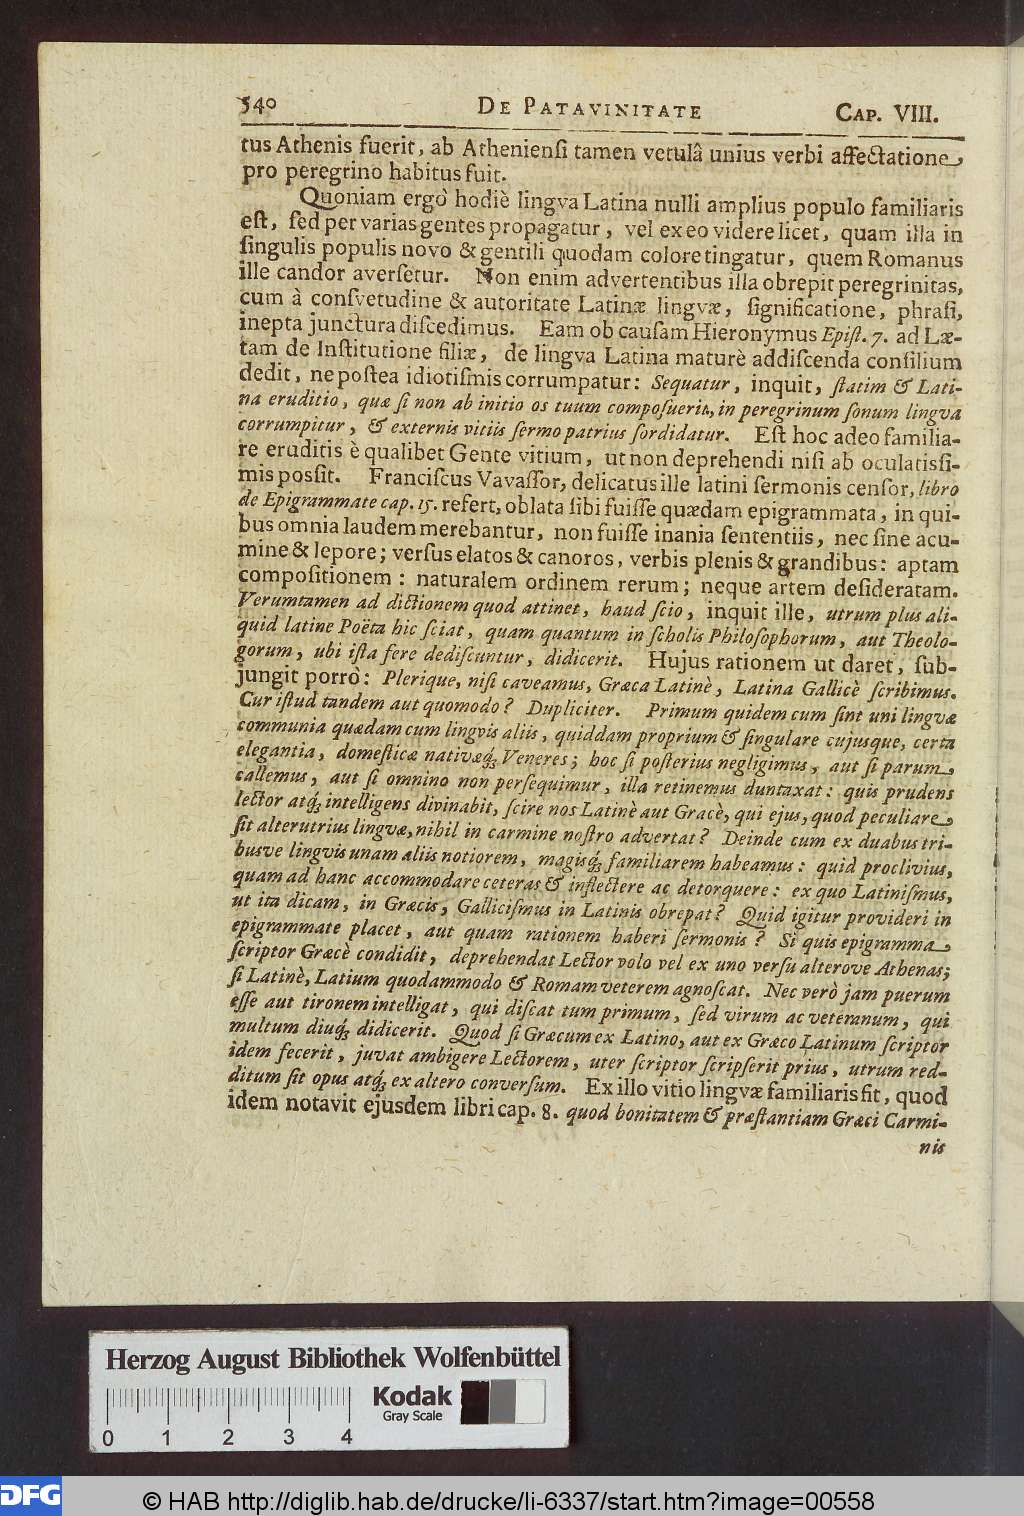 540 DE PATAVINITATE CAP. VIII.
tus Athenis fuerit, ab Athenienſi tamen vetulâ unius verbi affectatione
pro peregrino habitus fuit.
Quoniam ergò hodiè lingva Latina nulli amplius populo familiaris
eſt, ſed per varias gentes propagatur, vel ex eo videre licet, quam illa in
ſingulis populis novo & gentili quodam colore tingatur, quem Romanus
ille candor averſetur. Non enim advertentibus illa obrepit peregrinitas,
cum à conſvetudine & autoritate Latinæ lingvæ, ſignificatione, phraſi,
inepta junctura diſcedimus. Eam ob cauſam Hieronymus Epiſt. 7. ad Læ-
tam de Inſtitutione filiæ, de lingva Latina maturè addiſcenda conſilium
dedit, ne poſtea idiotiſmis corrumpatur: Sequatur, inquit, ſtatim & Lati-
na eruditio, quæ ſi non ab initio os tuum compoſuerit, in peregrinum ſonum lingva
corrumpitur, & externis vitiis ſermo patrius ſordidatur. Eſt hoc adeo familia-
re eruditis è qualibet Gente vitium, ut non deprehendi niſi ab oculatiſſi-
mis poſſit. Franciſcus Vavaſſor, delicatus ille latini ſermonis cenſor, libro
de Epigrammate cap. 15. refert, oblata ſibi fuiſſe quædam epigrammata, in qui-
bus omnia laudem merebantur, non fuiſſe inania ſententiis, nec ſine acu-
mine & lepore; verſus elatos & canoros, verbis plenis & grandibus: aptam
compoſitionem: naturalem ordinem rerum; neque artem deſideratam.
Verumtamen ad dictionem quod attinet, haud ſcio, inquit ille, utrum plus ali-
quid latine Poëta hic ſciat, quam quantum in ſcholis Philoſophorum, aut Theolo-
gorum, ubi iſta fere dediſcuntur, didicerit. Hujus rationem ut daret, ſub-
jungit porrò: Plerique, niſi caveamus, Græca Latinè, Latina Gallicè ſcribimus.
Cur iſtud tandem aut quomodo? Dupliciter. Primum quidem cum ſint uni lingvæ
communia quædam cum lingvis aliis, quiddam proprium & ſingulare cujusque, certa
elegantia, domeſticæ nativæq́; Veneres; hoc ſi poſterius negligimus, aut ſi parum
callemus, aut ſi omnino non perſequimur, illa retinemus duntaxat: quis prudens
lector atq́; intelligens divinabit, ſcire nos Latinè aut Græcè, qui ejus, quod peculiare
ſit alterutrius lingvæ, nihil in carmine noſtro advertat? Deinde cum ex duabus tri-
busve lingvis unam aliis notiorem, magisq́; familiarem habeamus: quid proclivius,
quam ad hanc accommodare ceteras & inflectere ac detorquere: ex quo Latiniſmus,
ut ita dicam, in Græcis, Galliciſmus in Latinis obrepat? Quid igitur provideri in
epigrammate placet, aut quam rationem haberi ſermonis? Si quis epigramma
ſcriptor Græcè condidit, deprehendat Lector volo vel ex uno verſu alterove Athenas;
ſi Latinè, Latium quodammodo & Romam veterem agnoſcat. Nec verò jam puerum
eſſe aut tironem intelligat, qui diſcat tum primum, ſed virum ac veteranum, qui
multum diuq́; didicerit. Quod ſi Græcum ex Latino, aut ex Græco Latinum ſcriptor
idem fecerit, juvat ambigere Lectorem, uter ſcriptor ſcripſerit prius, utrum red-
ditum ſit opus atq́; ex altero converſum. Ex illo vitio lingvæ familiaris fit, quod
idem notavit ejusdem libri cap. 8. quod bonitatem & præſtantiam Græci Carmi-
nis
Herzog August Bibliothek Wolfenbüttel
Kodak
Gray Scale
0 1 2 3 4
DFG
© HAB http://diglib.hab.de/drucke/li-6337/start.htm?image=00558